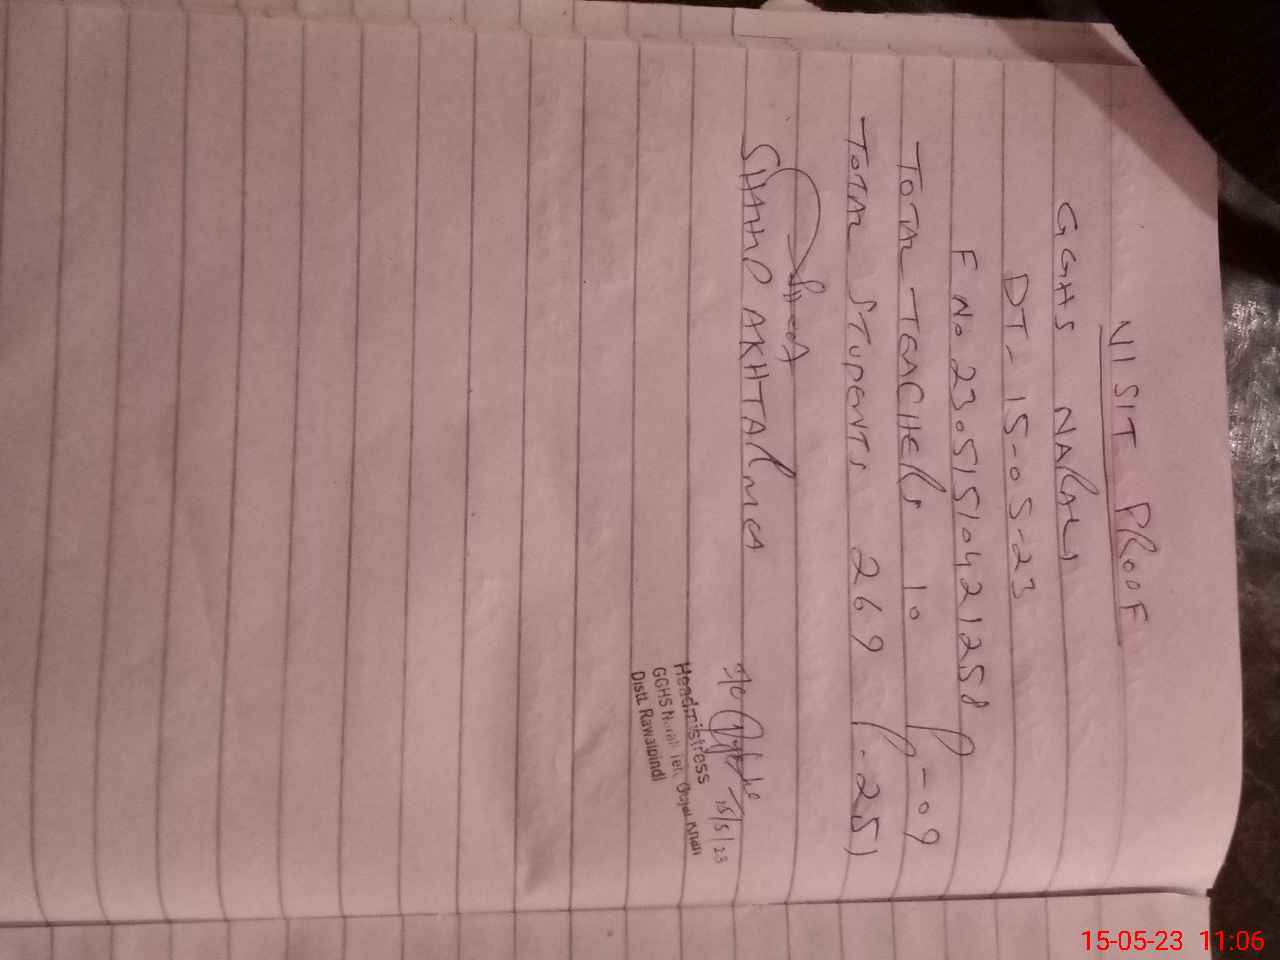 VISIT PROOF
GGHS NARALI
DT- 15-05-23
F No 23051510421258 P
TOTAL TEACHERS 10 P-09
TOTAL STUDENTS 269 P-251
SHAHID AKHTAR MEA
15/5/23
Headmistress
GGHS Narali Teh, Gujar Khan
Distt. Rawalpindi
15-05-23 11:06